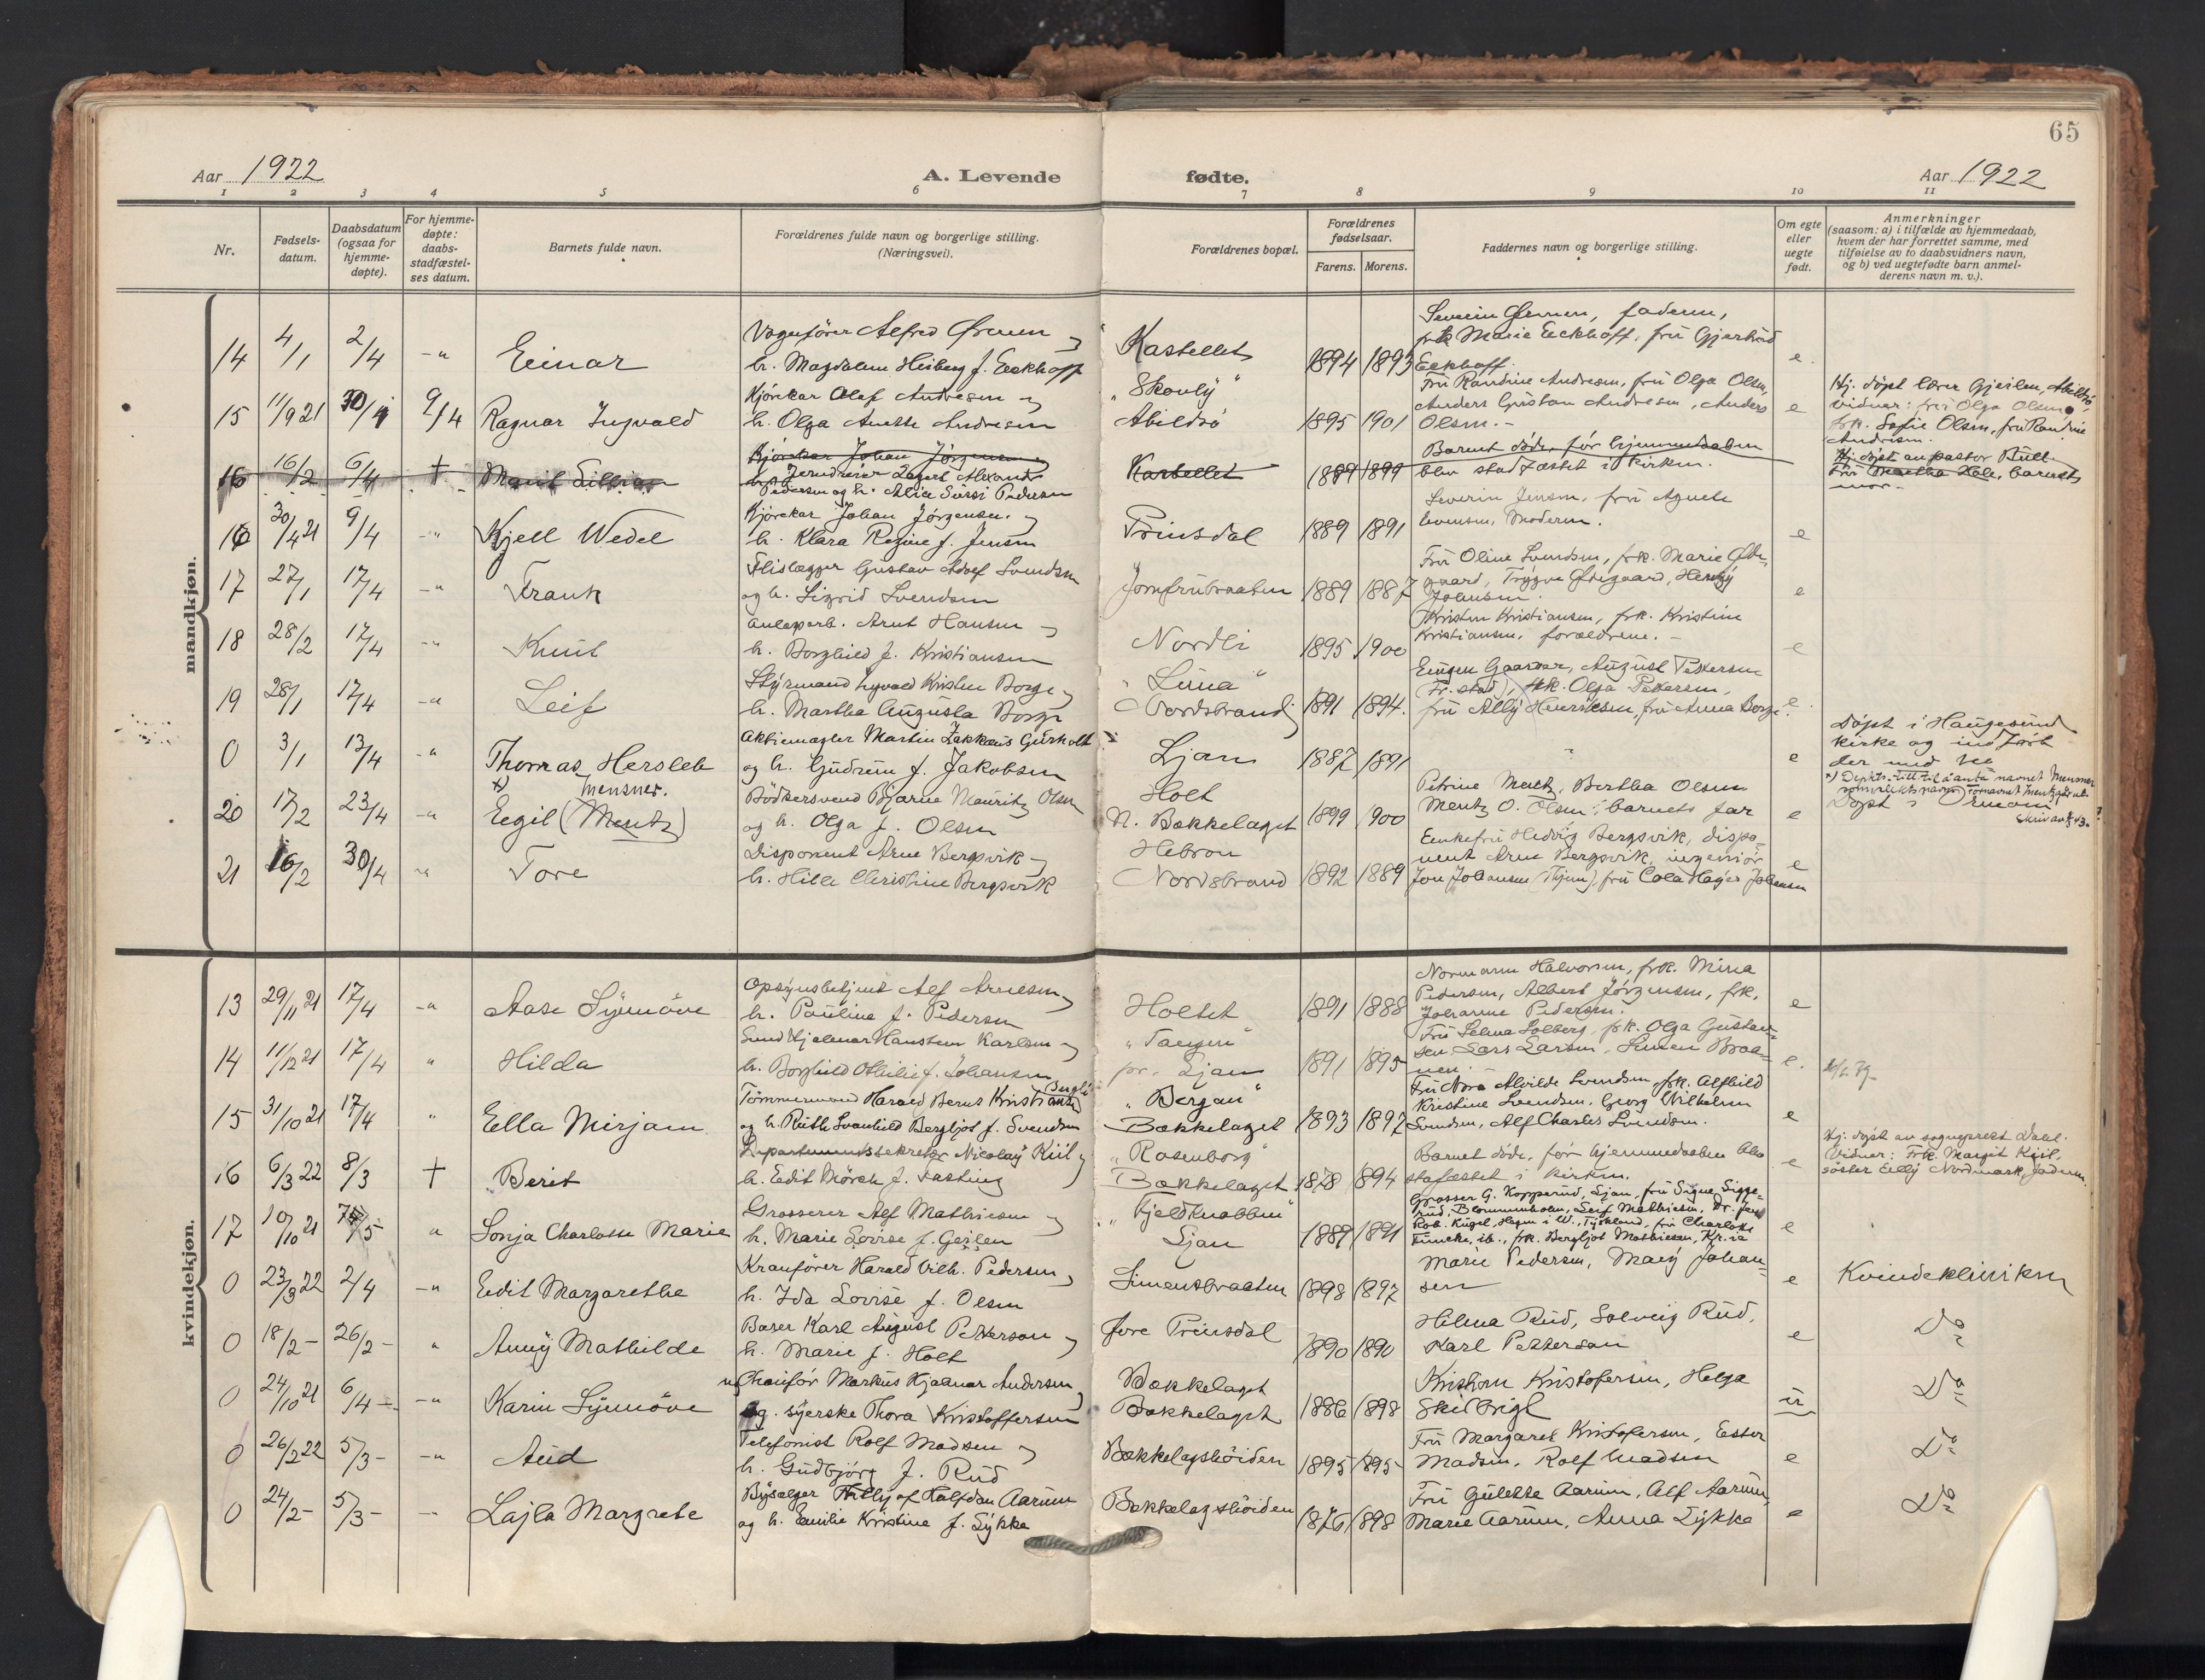 65
Aar 1922
A. Levende
fødte.
Aar 1922
1 2 3 4 5 6 7 8 9 10 11
Nr.
Fødsels-
datum.
Daabsdatum
(ogsaa for
hjemme-
døpte).
For hjemme-
døpte:
daabs-
stadfæstel-
ses datum.
Barnets fulde navn.
Forældrenes fulde navn og borgerlige stilling.
(Næringsvei).
Forældrenes bopæl.
Forældrenes
fødselsaar.
Farens. Morens.
Faddernes navn og borgerlige stilling.
Om egte
eller
uegte
født.
Anmerkninger
(saasom: a) i tilfælde av hjemmedaab,
hvem der har forrettet samme, med
tilføielse av to daabsvidners navn,
og b) ved uegtefødte barn anmel-
derens navn m. v.).
mandkjøn.
14 4/1 2/4 -" Einar
Vognfører Alfred
h. Magdalene Heiberg f. Eckhoff
Kastellet 1894 1893
Severin, faderen,
frk Marie Eckhoff, fru Gjertrud
Eckhoff. e.
15 11/9 21 30/1 9/4 Ragnar Ingvald
Kjørekar Olaf Andresen og
h. Olga Anette Andresen
"Skovly"
Abildsø 1895 1901
Fru Randine Andresen, fru Olga Olsen,
Anders Gustav Andresen, Anders
Olsen. - e
Hj. døpt lærer Gjeilen, Abildsø,
vidner: fru Olga Olsen
frk. Sofie Olsen, fru Randine
Andresen.
16 16/2 6/4 † Marit Lillian
Kjørekar Johan Jørgensen
Jerndreier Lagert Alexander
Pedersen og h. Alice Sussi Pedersen
Kastellet 1889 1899
Barnet døde, før hjemmedaaben
blev stadfæstet i kirken.
Hj. døpt av pastor Kull.
Fru Martha Hole, barnets
mor -
16 30/4 21 9/4 -" Kjell Wedel
Kjørekar Johan Jørgensen og
h. Klara Regine f. Jensen
Prinsdal 1889 1891
Severin Jensen, fru Agnete
Evensen, Moderen. e
17 27/1 17/4 -" Frank
Fliselægger Gustav Adolf Svendsen
og h. Sigrid Svendsen
Jomfrubraaten 1889 1887
Fru Oline Svendsen, frk. Marie Øde-
gaard, Trygve Ødegaard, Henry
Johansen. e
18 28/2 17/4 -" Knut
Anlegsarb. Arnt Hansen og
h. Borghild f. Kristiansen
Nordli 1895 1900
Kristen Kristiansen, frk. Kristine
Kristiansen, forældrene. - e
19 28/1 17/4 -" Leif
Styrmand Kristen Borge og
h. Martha Augusta Borge
"Luna"
Nordstrand 1891 1894.
Eugen Gaarder, August Pettersen
(Fr.stad), frk. Olga Pettersen,
fru Ally Henriksen, fru Anna Borge. e.
0 3/1 13/4 -" Thomas Hersleb
Aktiemægler Martin Zakkæus Gurholt
og h. Gudrun f. Jakobsen
Ljan 1887 1891 " e
Døpt i Haugesund
kirke og indført
der med
20 17/2 23/4 -" Egil (Mentz)
x) Mensner.
Bødkersvend Bjarne Mauritz Olsen
og h. Olga f. Olsen
Holt
N. Bækkelaget 1899 1900
Petrine Mentz, Bertha Olsen
Mentz O. Olsen, barnets far e
x) Depts. till. til å anta navnet Mensner
som slektsnavn
Døpt i
Skriv av
21 16/2 30/4 -" Tore
Disponent Arne Bergsvik og
h. Hilda Christine Bergsvik
Hebron
Nordstrand 1892 1889
Enkefru Hedvig Bergsvik, dispo-
nent Arne Bergsvik, ingeniør
Jon Johansen, fru Cola Høyer Johansen e
kvindekjøn.
13 29/11 21 17/4 -" Aase Synnøve
Opsynsbetjent Alf Arnesen og
h. Pauline f. Pedersen
Holtet 1891 1888
Normann Halvorsen, frk. Mina
Pedersen, Albert Jørgensen, frk.
Johanne Pedersen. e
14 11/12 21 17/4 " Hilda
Smed Hjalmar Karlsen og
h. Borghild Othilie f. Johansen
"Tangen"
pr. Ljan 1891 1895
Fru Selma Solberg, frk. Olga Gustav-
sen Lars Larsen, Simen Braa-
nen. e.
15 31/10 21 17/4 " Ella Mirjam
Tømmermand Harald Bernt Kristiansen
og h. Ruth Svanhild Bergljot f. Svendsen
"Bergan"
Bækkelaget 1893 1897
Fru Nora Alvilde Svendsen, frk. Alfhild
Kristine Svendsen, Georg Vilhelm
Svendsen, Alf Charles Svendsen. e
16 6/3 22 8/3 † Berit
Departementssekretær Nicolay Kiil og
h. Edit Mørch f. Fasting
"Rosenborg"
Bækkelaget 1878 1894
Barnet døde, før hjemmedaaben blev
stafæstet i kirken. e
Hj. døpt av sogneprest Dahl.
Vidner: Frk. Margit Kiil,
søster Elly Nordmark, faderen.
17 10/10 21 7/5 " Sonja Charlotte Marie
Grosserer Alf Mathiesen og
h. Marie Lovise f. Geilen
"Fjeldknabben"
Ljan 1889 1891
Grosser G. Kopperud, Ljan, fru Signe Sigge-
rud, Blommenholm, Leif Mathiesen, Dr. fru
Rob. Kügel, Hagen i W., Tyskland, fru Charlotte
Funcke, ib., frk. Bergljot Mathiesen, Kr.ia e
0 23/3 22 2/4 -" Edit Margarethe
Kranfører Harald Vilh. Pedersen og
h. Ida Lovise f. Olsen
Simensbraaten 1898 1897
Marie Pedersen, Mary Johan-
sen e
Kvindeklinikken
0 18/2 - 26/2 - " Anny Mathilde
Baser Karl August Petterson og
h. Marie f. Holt
Øvre Prinsdal 1890 1890
Helma Rud, Solveig Rud,
Karl Petterson e
Do
0 24/10 21 6/4 - -" Karin Synnøve
Chauffør Markus Hjalmar Andersen
og syerske Thora Kristoffersen
Bækkelaget
Bækkelaget 1886 1898
Kristofersen, Helga
u
Do
0 26/2 22 5/3 - -" Aud
Telefonist Rolf Madsen og
h. Gudbjørg f. Rud
Bækkelagshøiden 1895 1895
Fru Margaret Kristofersen, Ester
Madsen, Rolf Madsen e
Do
0 24/2 - 5/3 - -" Lajla Margrete
Halfdan Aarum
og h. Emilie Kristine f. Lykke
Bækkelagshøiden 1876 1898
Fru Gulette Aarum, Alf Aarum,
Marie Aarum, Anna Lykke e
Do